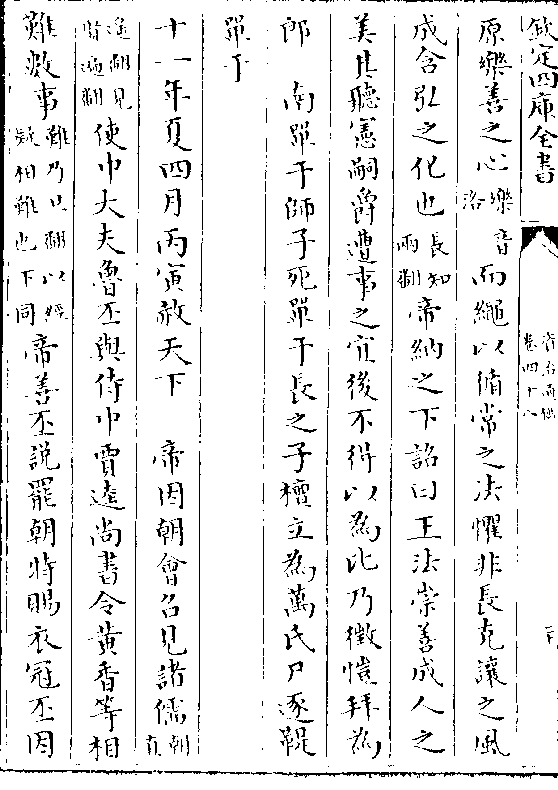 欽定四庫全書
資治通鑑
卷四十八
原樂善之心樂音洛而繩以循常之法懼非長克讓之風
成含弘之化也長知兩翻帝納之下詔曰王法崇善成人之
美其聽憲嗣爵遭事之宜後不得以為比乃徵愷拜為
郎　南單于師子死單于長之子檀立為萬氏尸逐鞮
單于
十一年夏四月丙寅赦天下　帝因朝會召見諸儒朝直
遥翻見賢遍翻使中大夫魯丕與侍中賈逵尚書令黄香等相
難數事難乃旦翻以經疑相難也下同帝善丕説罷朝特賜衣冠丕因